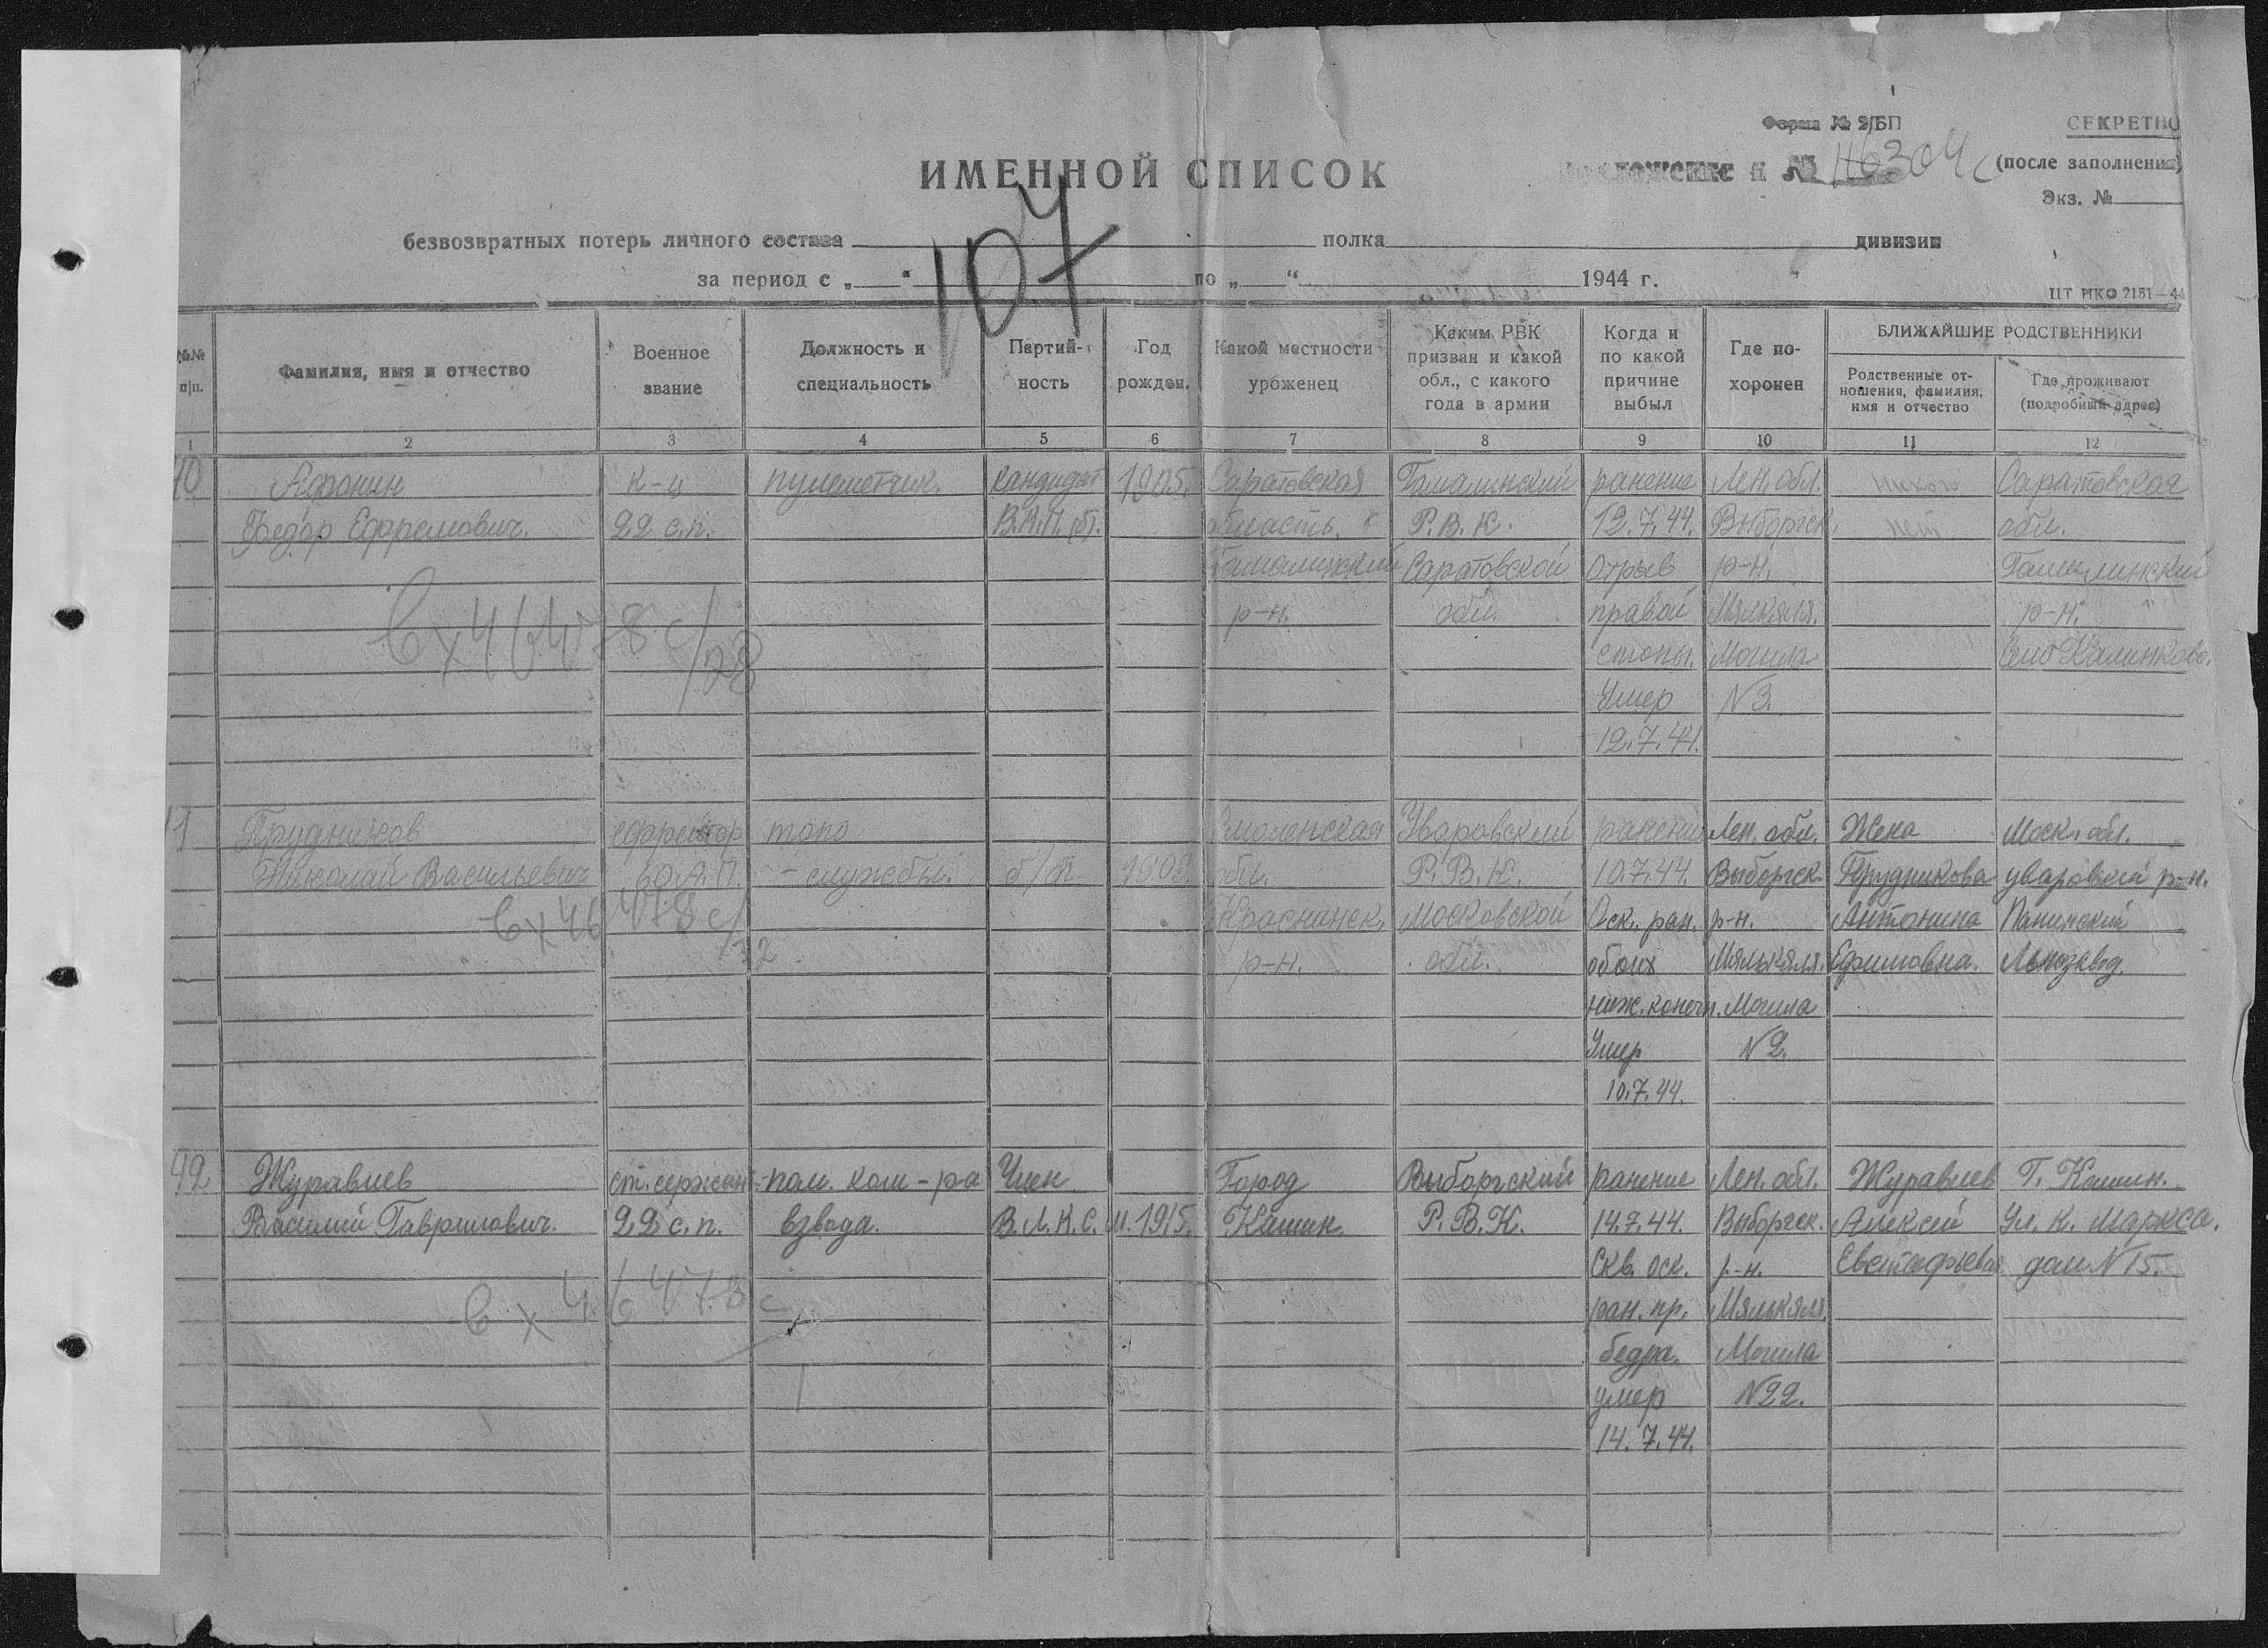 Форма № 2/БП
СЕКРЕТНО
ИМЕННОЙ СПИСОК
(после заполнения)
Экз. №
107
безвозвратных потерь личного состава полка дивизии
за период с „ “ по „ “ 1944 г.
ЦТ НКО 2151—44
№№ п/п.
Фамилия, имя и отчество
Военное звание
Должность и специальность
Партий-ность
Год рожден.
Какой местности уроженец
Каким РВК призван и какой обл., с какого года в армии
Когда и по какой причине выбыл
Где по-хоронен
БЛИЖАЙШИЕ РОДСТВЕННИКИ
Родственные от-ношения, фамилия, имя и отчество
Где проживают (подробный адрес)
1 2 3 4 5 6 7 8 9 10 11 12
Афонин к-ц пулеметчик. кандидат 1905. Саратовская ранение Лен. обл. никого Саратовская
Федор Ефремович. 22 с.п. В.К.П.(б). область. Р.В.К. 12.7.44. Выборгск. нет обл.
Саратовской отрыв р-н.
р-н. обл. правой р-н.
стопы. Могила
Умер N3.
12.7.44.
Прудников ефрейтор топо Смоленская Уваровский ранение Лен. обл. Жена Моск. обл.
Николай Васильевич А.П. - службы. б/п обл. Р.В.К. 10.7.44. Выборгск. Прудникова уваровский р-н.
Московской Оск. ран. р-н. Антонина
р-н. обл. обоих Мялькяля. Ефимовна. Льнозавод.
ниж. конечн. Могила
Умер N2.
10.7.44.
42. Журавлев ст. сержант пом. ком-ра Член Город Выборгский ранение Лен. обл. Журавлев Г. Кашин.
Василий Гаврилович. 22 с.п. взвода. В.Л.К.С.М. 1915. Кашин. Р.В.К. 14.7.44. Выборгск. Алексей Ул. К. Маркса.
Скв. оск. р-н. дом N 15.
ран. пр. Мялькяля.
бедра. Могила
умер N22.
14.7.44.